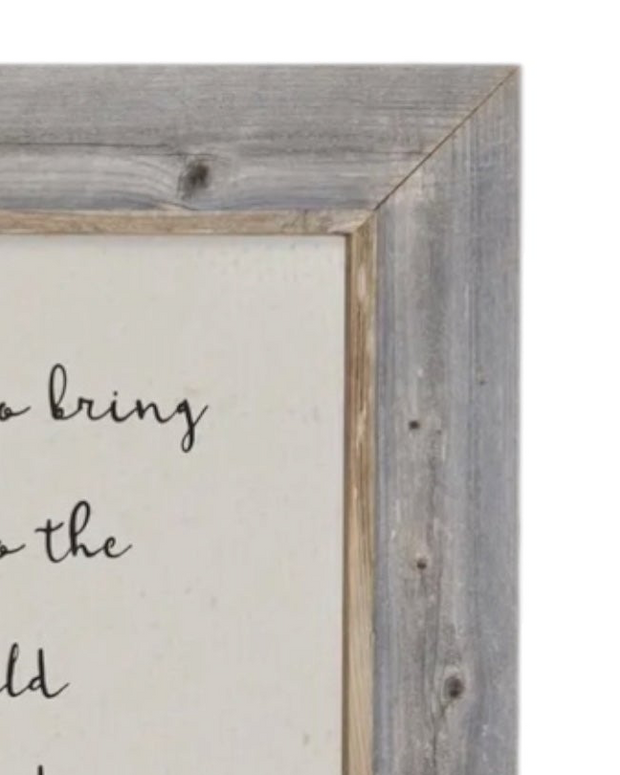 o bring
o the
ld